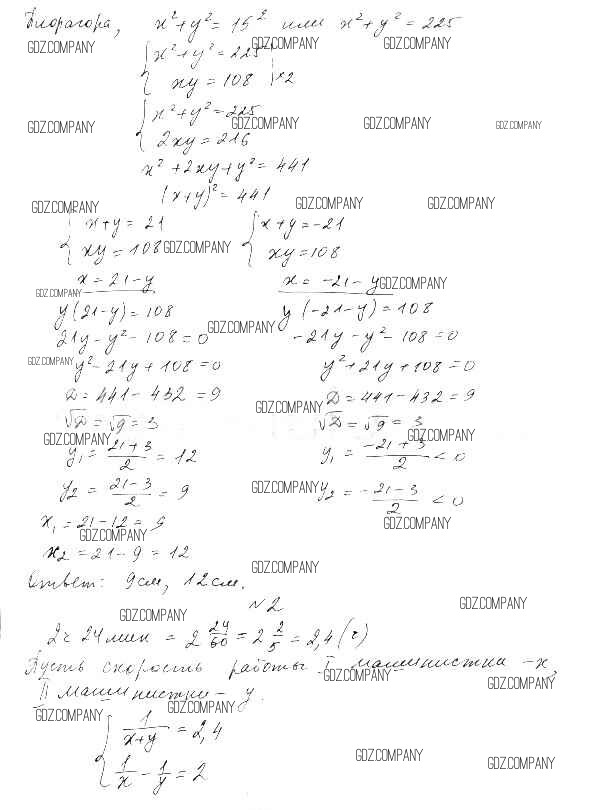 Пифагора, x² + y² = 15² или x² + y² = 225
GDZ.COMPANY GDZ.COMPANY GDZ.COMPANY
{ x² + y² = 225
xy = 108 | ×2
GDZ.COMPANY GDZ.COMPANY GDZ.COMPANY GDZ.COMPANY
{ x² + y² = 225
2xy = 216
x² + 2xy + y² = 441
(x + y)² = 441
GDZ.COMPANY GDZ.COMPANY GDZ.COMPANY
{ x + y = 21 { x + y = -21
xy = 108 GDZ.COMPANY xy = 108
x = 21 - y x = -21 - y GDZ.COMPANY
GDZ.COMPANY
y(21 - y) = 108 y(-21 - y) = 108
21y - y² - 108 = 0 GDZ.COMPANY -21y - y² - 108 = 0
GDZ.COMPANY y² - 21y + 108 = 0 y² + 21y + 108 = 0
D = 441 - 432 = 9 GDZ.COMPANY D = 441 - 432 = 9
√D = √9 = 3 √D = √9 = 3
GDZ.COMPANY GDZ.COMPANY
y₁ = (21 + 3)/2 = 12 y₁ = (-21 + 3)/2 < 0
y₂ = (21 - 3)/2 = 9 GDZ.COMPANY y₂ = (-21 - 3)/2 < 0
x₁ = 21 - 12 = 9 GDZ.COMPANY
GDZ.COMPANY
x₂ = 21 - 9 = 12
GDZ.COMPANY
Ответ: 9 см, 12 см.
№2 GDZ.COMPANY
GDZ.COMPANY
2 ч 24 мин = 2 24/60 = 2 2/5 = 2,4 (ч)
Пусть скорость работы I машинистки - x,
GDZ.COMPANY GDZ.COMPANY
II машинистки - y.
GDZ.COMPANY GDZ.COMPANY
{ 1/(x + y) = 2,4
GDZ.COMPANY GDZ.COMPANY
1/x - 1/y = 2